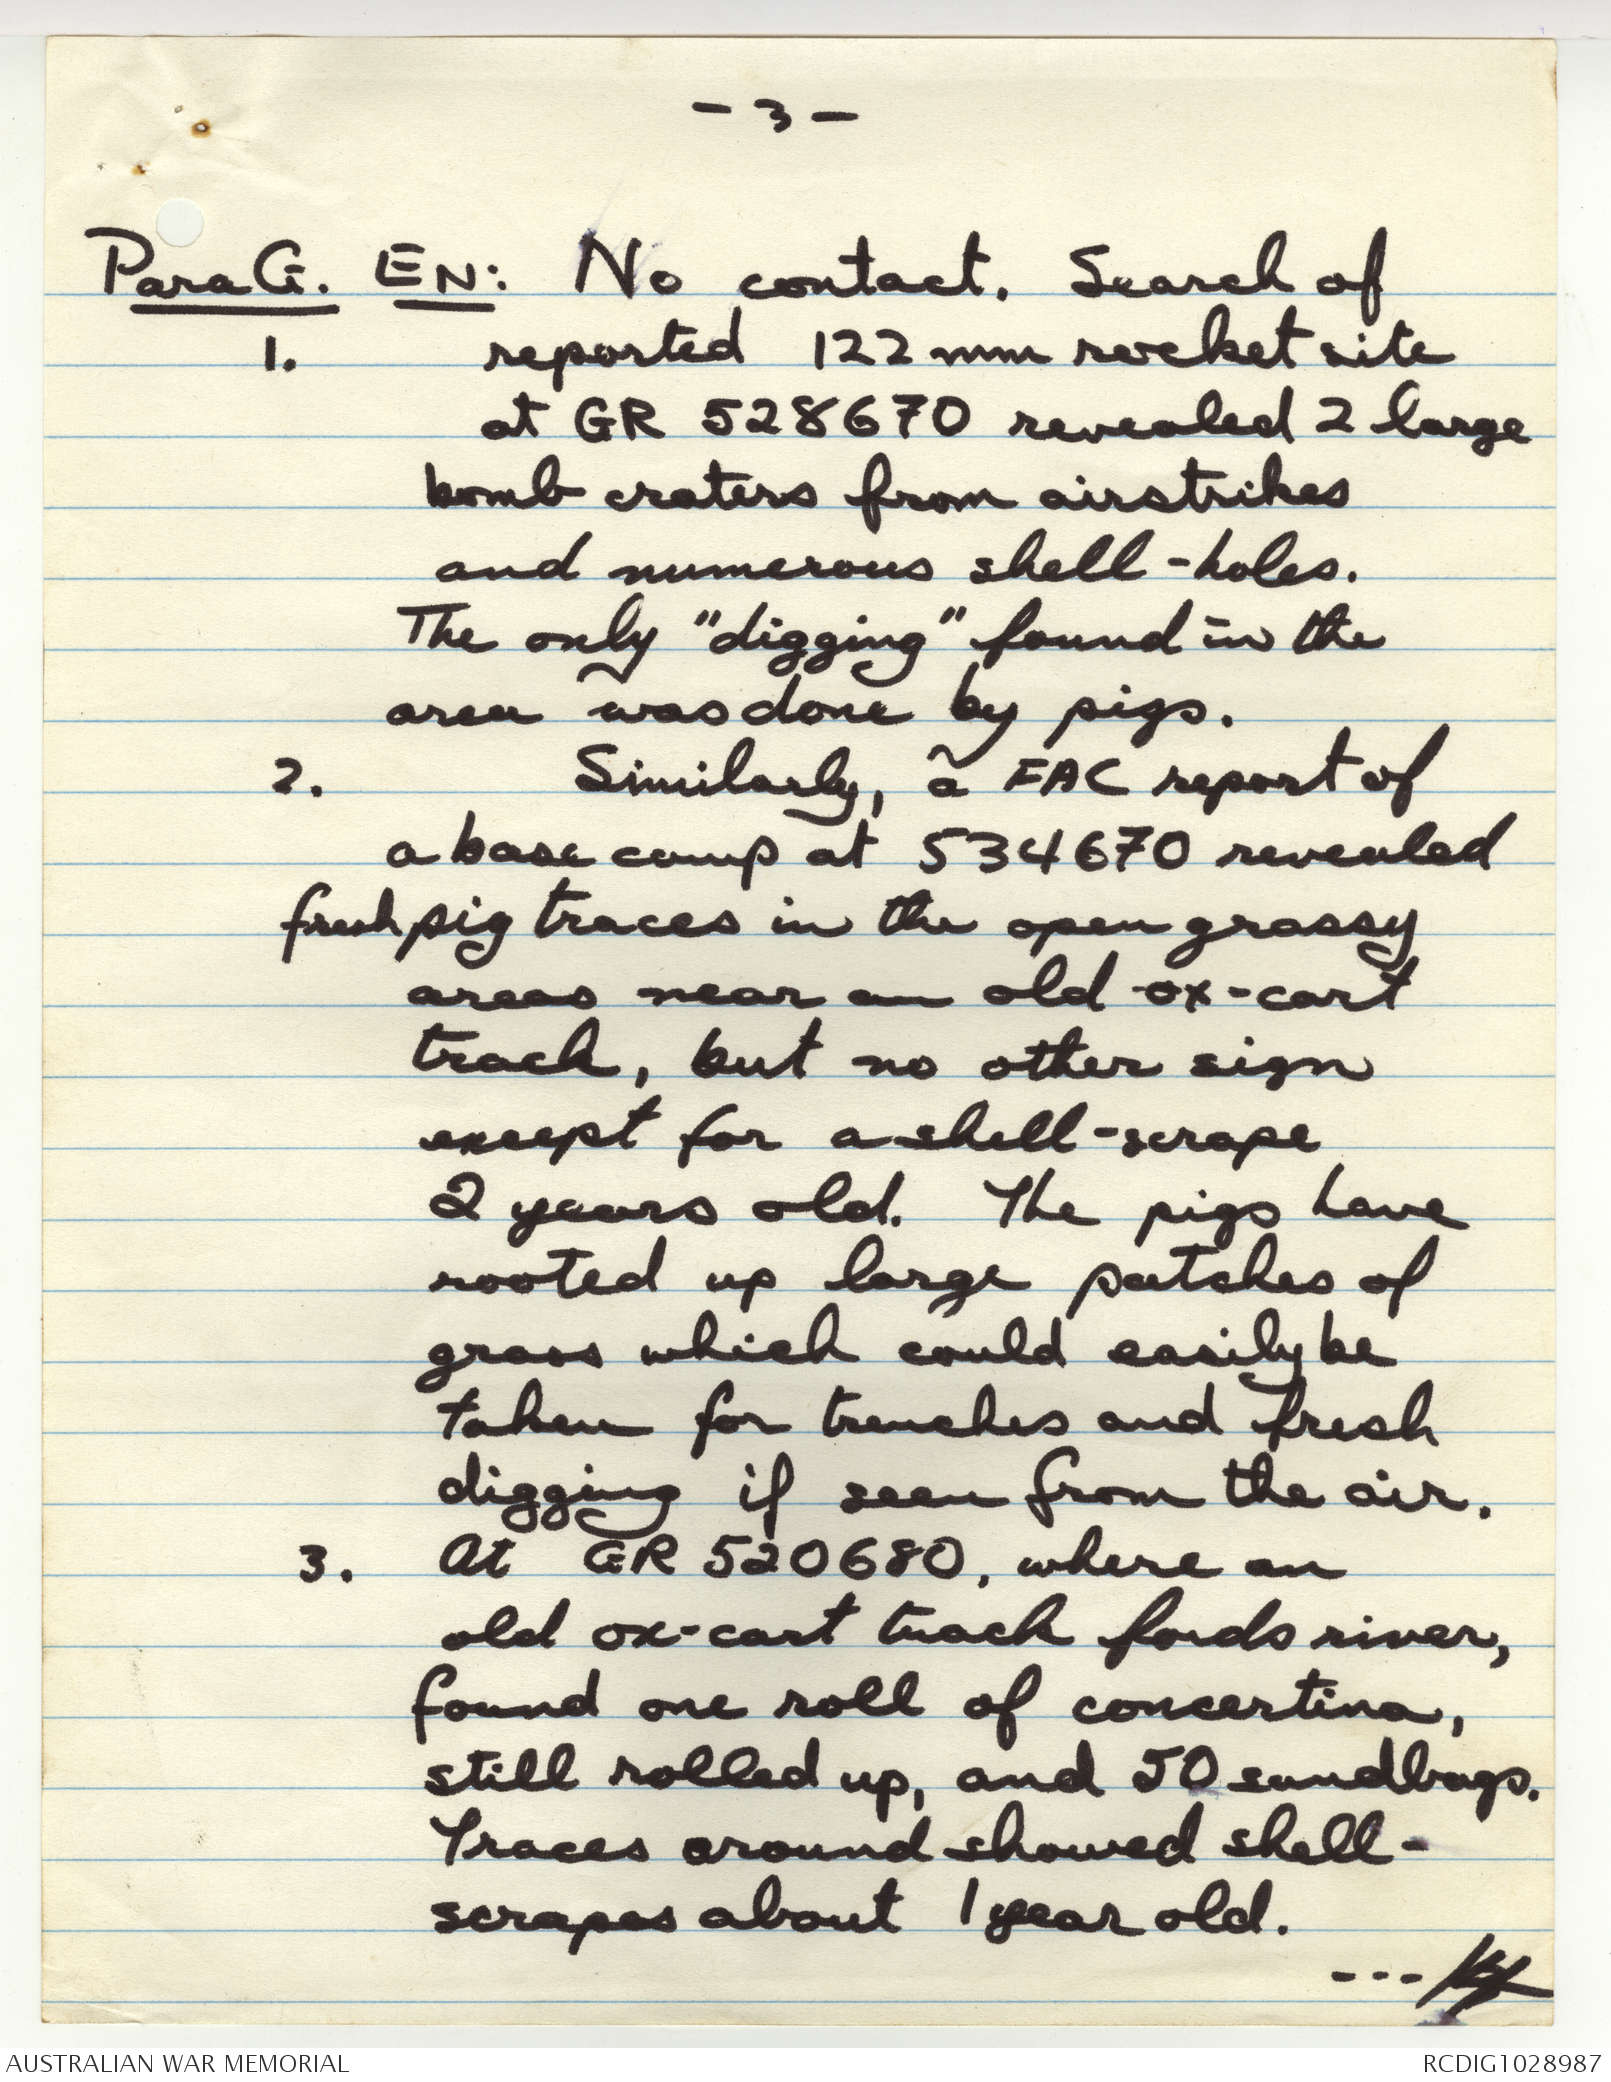 - 3 -
Para G. EN: No contact. Search of
1. reported 122 mm rocket site
at GR 528670 revealed 2 large
bomb craters from airstrikes
and numerous shell-holes.
The only "digging" found in the
area was done by pigs.
2. Similarly, a FAC report of
a base camp at 534670 revealed
fresh pig traces in the open grassy
areas near an old ox-cart
track, but no other sign
except for a shell-scrape
2 years old. The pigs have
rooted up large patches of
grass which could easily be
taken for trenches and fresh
digging if seen from the air.
3. At GR 520680, where an
old ox-cart track fords river,
found one roll of concertina,
still rolled up, and 50 sandbags.
Traces around showed shell-
scrapes about 1 year old.
---
AUSTRALIAN WAR MEMORIAL
RCDIG1028987